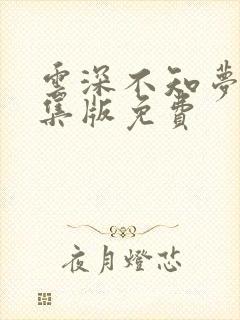 雲深不知夢
集版免費
夜月燈芯